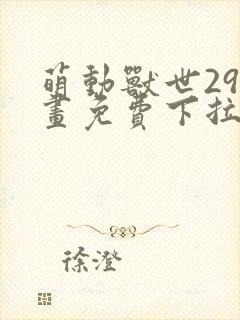 萌動獸世29
畫免費下拉
徐澄